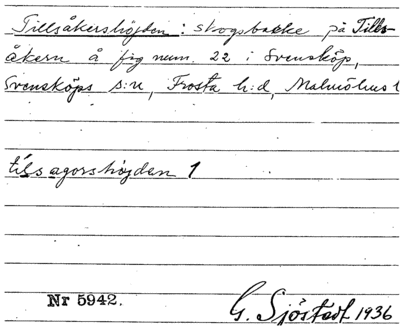 Tillsåkershöjden: skogsbakke på Tills-
åkern å fig num. 22 i Svensköp,
Svensköps s:n, Frosta h:d, Malmöhus l
tilsagorshöjden 1
Nr 5942.
G. Sjöstedt 1936